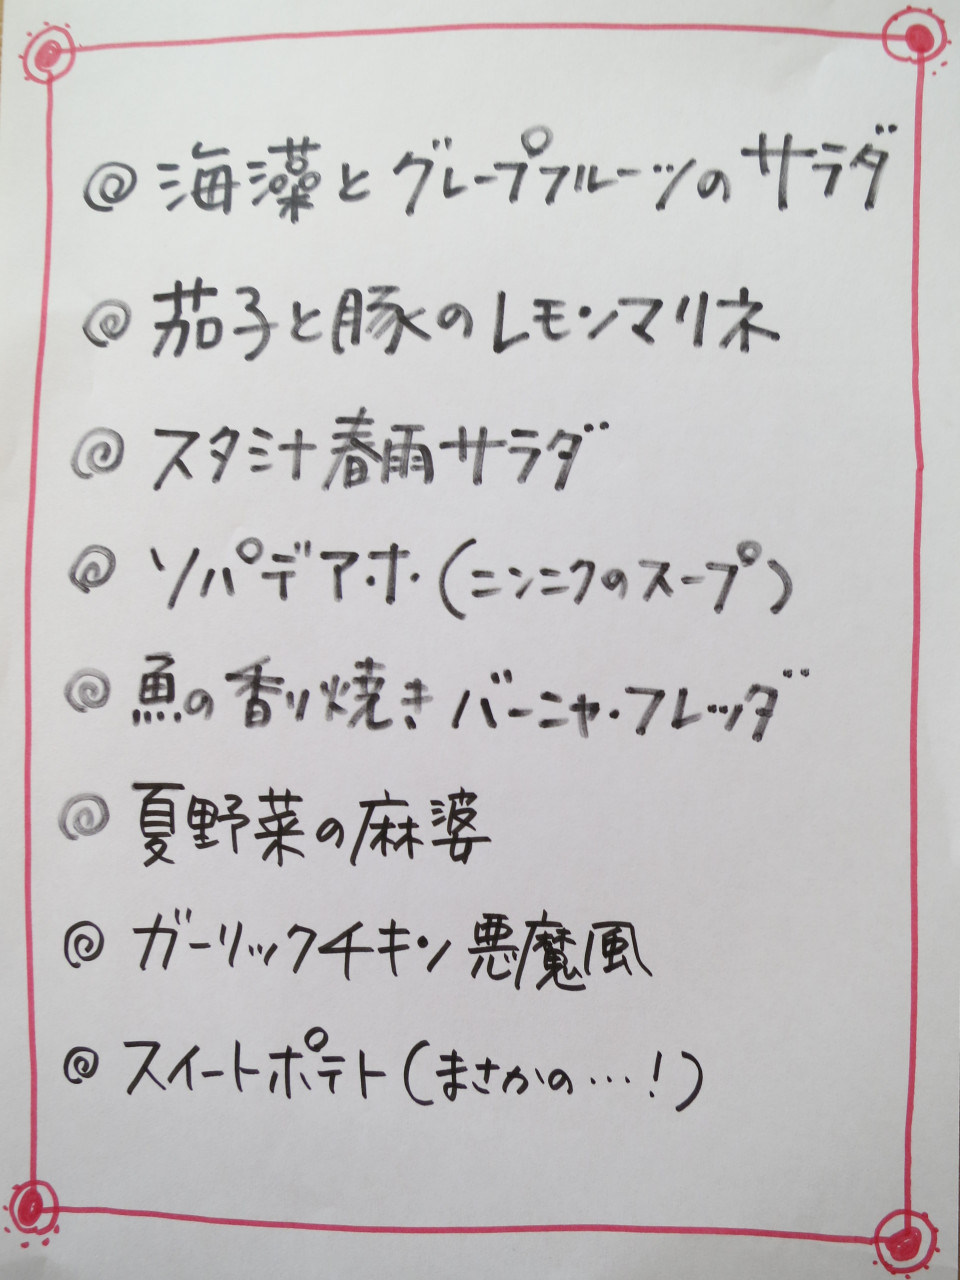 @ 海藻とグレープフルーツのサラダ
@ 茄子と豚のレモンマリネ
@ スタミナ春雨サラダ
@ ソパデアホ(ニンニクのスープ)
@ 魚の香り焼きバーニャ・フレッダ
@ 夏野菜の麻婆
@ ガーリックチキン悪魔風
@ スイートポテト(まさかの…!)